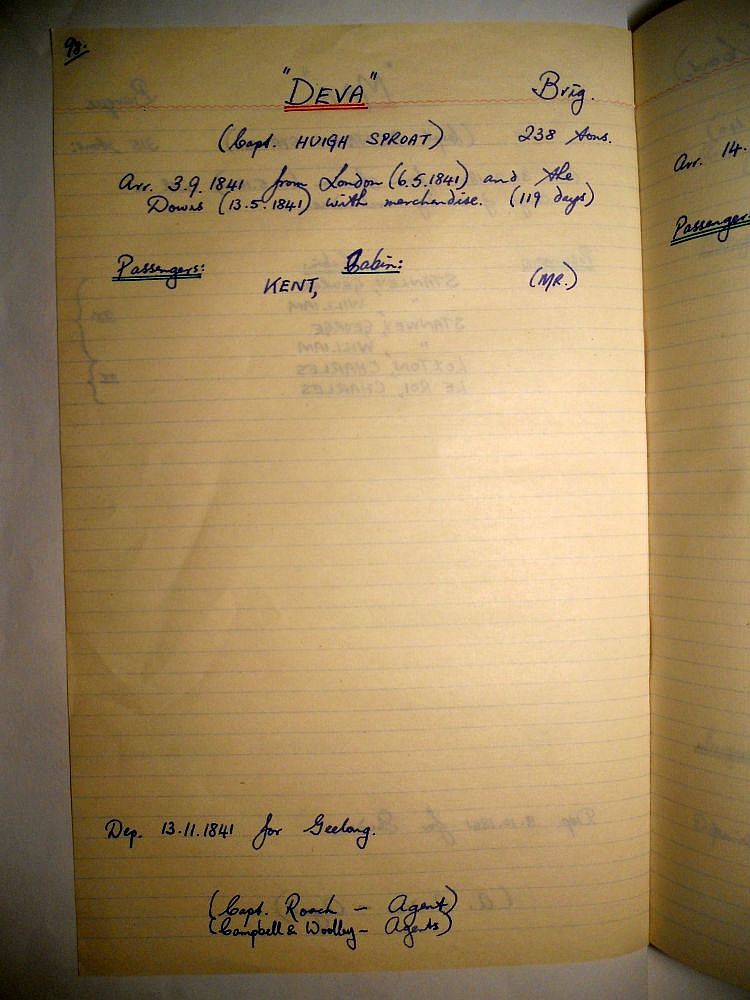 98.
"DEVA" Brig.
(Capt. HUIGH SPROAT) 238 tons.
Arr. 3.9.1841 from London (6.5.1841) and the
Downs (13.5.1841) with merchandise. (119 days)
Passengers: Cabin:
KENT, (MR.)
Dep. 13.11.1841 for Geelong.
(Capt. Roach - Agent)
(Campbell & Woolley - Agents)
Arr. 14.
Passengers